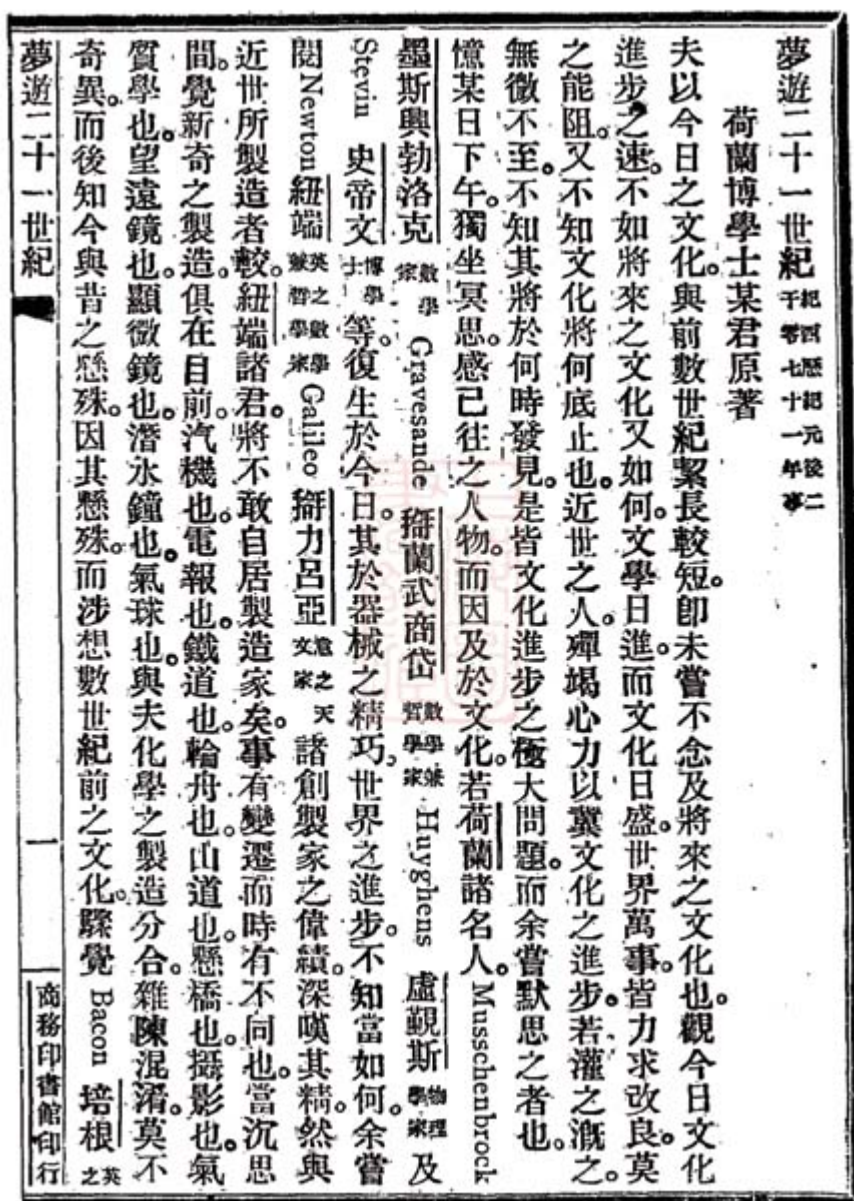 夢遊二十一世紀 紀西歷紀元後二千零七十一年事
荷蘭博學士某君原著
夫以今日之文化。與前數世紀絜長較短。卽未嘗不念及將來之文化也。觀今日文化
進步之速。不如將來之文化又如何。文學日進。而文化日盛。世界萬事。皆力求改良。莫
之能阻。又不知文化將何底止也。近世之人。殫竭心力以冀文化之進步。若灌之漑之。
無微不至。不知其將於何時發見。是皆文化進步之極大問題。而余嘗默思之者也。
憶某日下午。獨坐冥思。感已往之人物。而因及於文化。若荷蘭諸名人。Musschenbrock
墨斯興勃洛克 數學家 Gravesande 搿蘭武商岱 數學兼哲學家 Huyghens 盧觀斯 物理學家 及
Stevin 史帝文 博學士 等。復生於今日。其於器械之精巧。世界之進步。不知當如何。余嘗
閱 Newton 紐端 英之數學兼哲學家 Galileo 搿力呂亞 意之天文家 諸創製家之偉績。深嘆其精。然與
近世所製造者較。紐端諸君。將不敢自居製造家矣。事有變遷。而時有不同也。當沉思
間。覺新奇之製造。俱在目前。汽機也。電報也。鐵道也。輪舟也。山道也。懸橋也。攝影也。氣
質學也。望遠鏡也。顯微鏡也。潛水鐘也。氣球也。與夫化學之製造分合。雜陳混淆。莫不
奇異。而後知今與昔之懸殊。因其懸殊。而涉想數世紀前之文化。驟覺 Bacon 培根 英之
夢遊二十一世紀
一
商務印書館印行